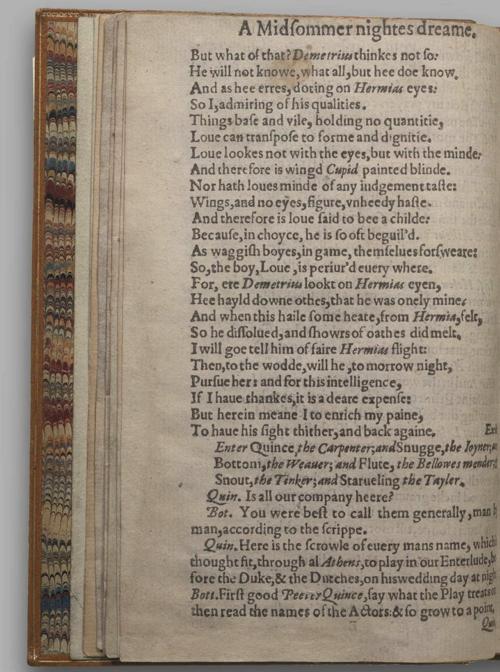 A Midſommer nightes dreame.
But what of that? Demetrius thinkes not ſo:
He will not knowe, what all, but hee doe know.
And as hee erres, doting on Hermias eyes:
So I, admiring of his qualities.
Things baſe and vile, holding no quantitie,
Loue can tranſpoſe to forme and dignitie.
Loue lookes not with the eyes, but with the minde:
And therefore is wingd Cupid painted blinde.
Nor hath loues minde of any iudgement taſte:
Wings, and no eyes, figure, vnheedy haſte.
And therefore is loue ſaid to bee a childe:
Becauſe, in choyce, he is ſo oft beguil'd.
As waggiſh boyes, in game, themſelues forſweare:
So, the boy, Loue, is periur'd euery where.
For, ere Demetrius lookt on Hermias eyen,
Hee hayld downe othes, that he was onely mine.
And when this haile ſome heate, from Hermia, felt,
So he diſſolued, and ſhowrs of oathes did melt.
I will goe tell him of faire Hermias flight:
Then, to the wodde, will he, to morrow night,
Purſue her: and for this intelligence,
If I haue thankes, it is a deare expenſe:
But herein meane I to enrich my paine,
To haue his ſight thither, and back againe.
Enter Quince, the Carpenter; and Snugge, the Ioyner; an
Bottom, the Weauer; and Flute, the Bellowes mender;
Snout, the Tinker; and Starueling the Tayler.
Quin. Is all our company heere?
Bot. You were beſt to call them generally, man b
man, according to the ſcrippe.
Quin. Here is the ſcrowle of euery mans name, which
thought fit, through al Athens, to play in our Enterlude, b
fore the Duke, & the Dutches, on his wedding day at nigh
Bott. Firſt good Peeter Quince, ſay what the Play treats on
then read the names of the Actors: & ſo grow to a point,